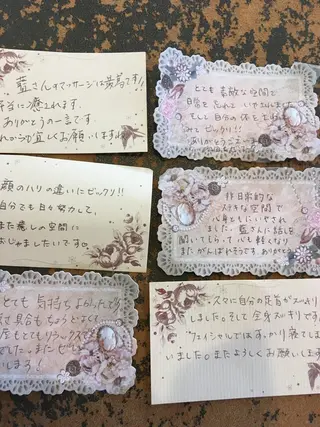 藍さんマッサージは最高です!!
当に癒されます。
ありがとうの一言です
れからも宜しくお願いします
とても素敵な空間で
日常を忘れていやされました
そして自分の体を
みてビックリ!!
ありがとうございま
顔のハリの違いにビックリ!!
自分でも日々努力して、
また癒しの空間に
おじゃましたいです。
非日常的な
ステキな空間で
心身ともにいやされ
ました。藍さんに話を
聞いてもらって心も軽くなり
またがんばれそうです。ありがとう
とても気持ちよかったです
さ具合もちょうどよく
屋もとてもリラックスで
でした。またぜひ
います!
久々に自分の足首がスーパリ
しました。そして全身スッキリです。
フェイシャルではすっかり寝てしま
いました。またよろしくお願いします